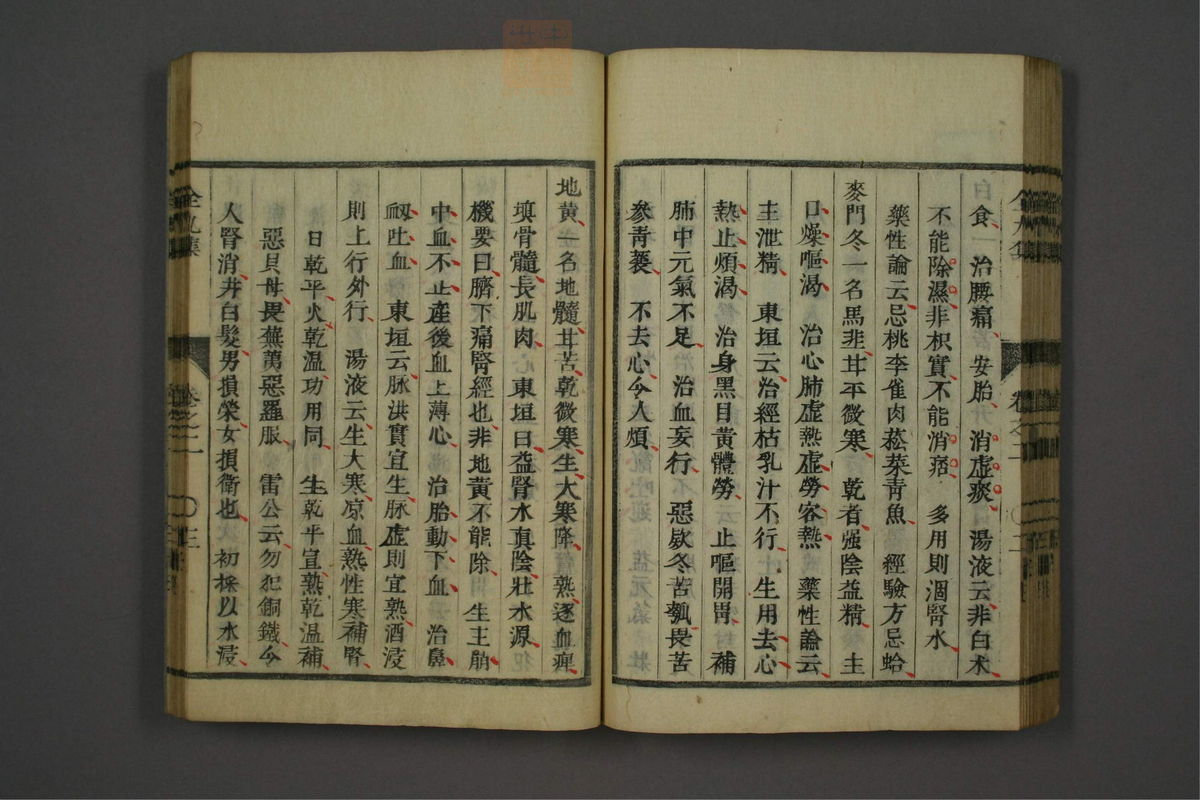 白食 治腰痛 安胎 消虛痰 湯液云非白朮
不能除濕非枳實不能消痞 多用則涸腎水
藥性論云忌桃李雀肉菘菜青魚 經驗方忌蛤
麥門冬一名馬韭甘平微寒 乾者强陰益精 主
口燥嘔渴 治心肺虛熱虛勞客熱 藥性論云
主泄精 東垣云治經枯乳汁不行 生用去心
熱止煩渴 治身黑目黃體勞 止嘔開胃 補
肺中元氣不足 治血妄行 惡欵冬苦瓠畏苦
參青蘘 不去心令人煩
全九集
卷之二
地黄 一名地髓甘苦乾微寒生大寒降 熟逐血痺
填骨髓長肌肉 東垣曰益腎水真陰壯水源
機要曰臍下痛腎經也非地黄不能除 生主䘐
中血不止産後血上薄心 治胎動下血 治鼻
衂吐血 東垣云脉洪實宜生脉虛則宜熟酒浸
則上行外行 湯液云生大寒凉血熟性寒補腎
日乾平火乾溫功用同 生乾平宣熟乾溫補
惡貝母畏蕪荑惡羅服 雷公云勿犯銅鐵令
人腎消并白髮男損榮女損衛也 初採以水浸
全九集
卷之二
〇三